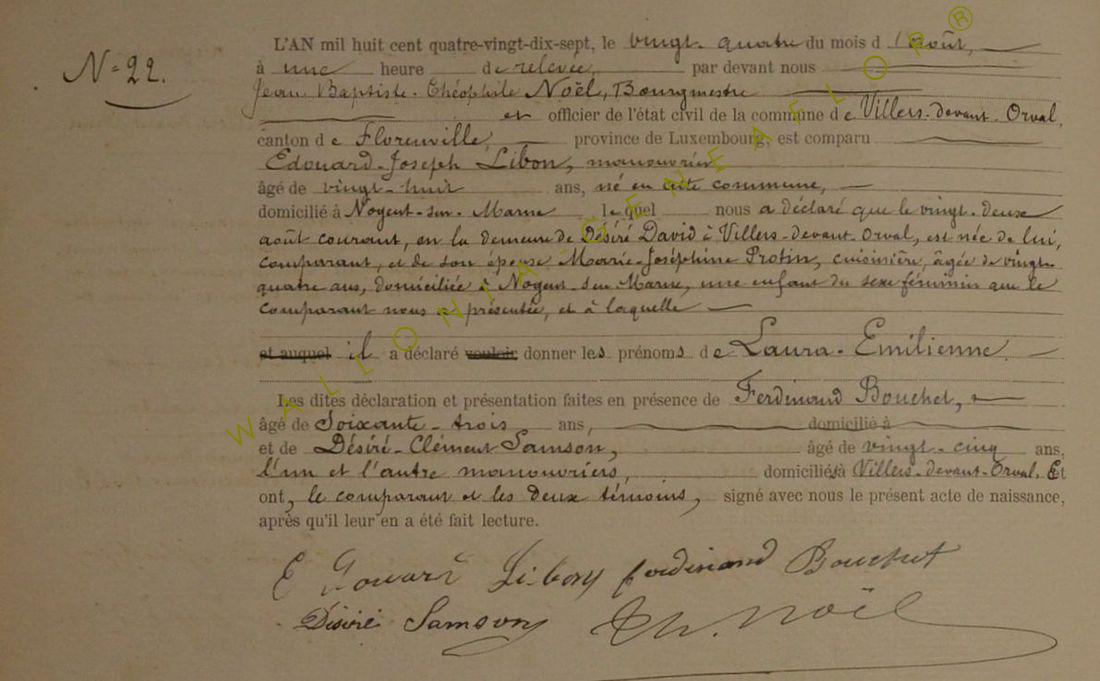 N=22.
L'AN mil huit cent quatre-vingt-dix-sept, le vingt-quatre du mois d'août,
à une heure de relevée, par devant nous
Jean Baptiste-Théophile Noël, Bourgmestre
et officier de l'état civil de la commune de Villers-devant-Orval,
canton de Florenville, province de Luxembourg, est comparu
Edouard-Joseph Libon, manouvrier
âgé de vingt-huit ans, né en cette commune,
domicilié à Nogent-sur-Marne lequel nous a déclaré que le vingt-deux
août courant, en la demeure de Désiré David à Villers-devant-Orval, est née de lui,
comparant, et de son épouse Marie-Joséphine Protin, cuisinière, âgée de vingt-
quatre ans, domiciliée à Nogent-sur-Marne, une enfant du sexe féminin que le
comparant nous a présentée, et à laquelle
et auquel il a déclaré vouloir donner les prénoms de Laura-Emilienne.
Les dites déclaration et présentation faites en présence de Ferdinand Bouchet,
âgé de Soixante-trois ans, domicilié à
et de Désiré-Clément Samson, âgé de vingt-cinq ans,
l'un et l'autre manouvriers, domiciliés à Villers-devant-Orval. Et
ont, le comparant et les deux témoins, signé avec nous le présent acte de naissance,
après qu'il leur en a été fait lecture.
Edouard Libon ferdinand Bouchet
Désiré Samson Th. Noël
WALLONIA-GENEAFLOR®